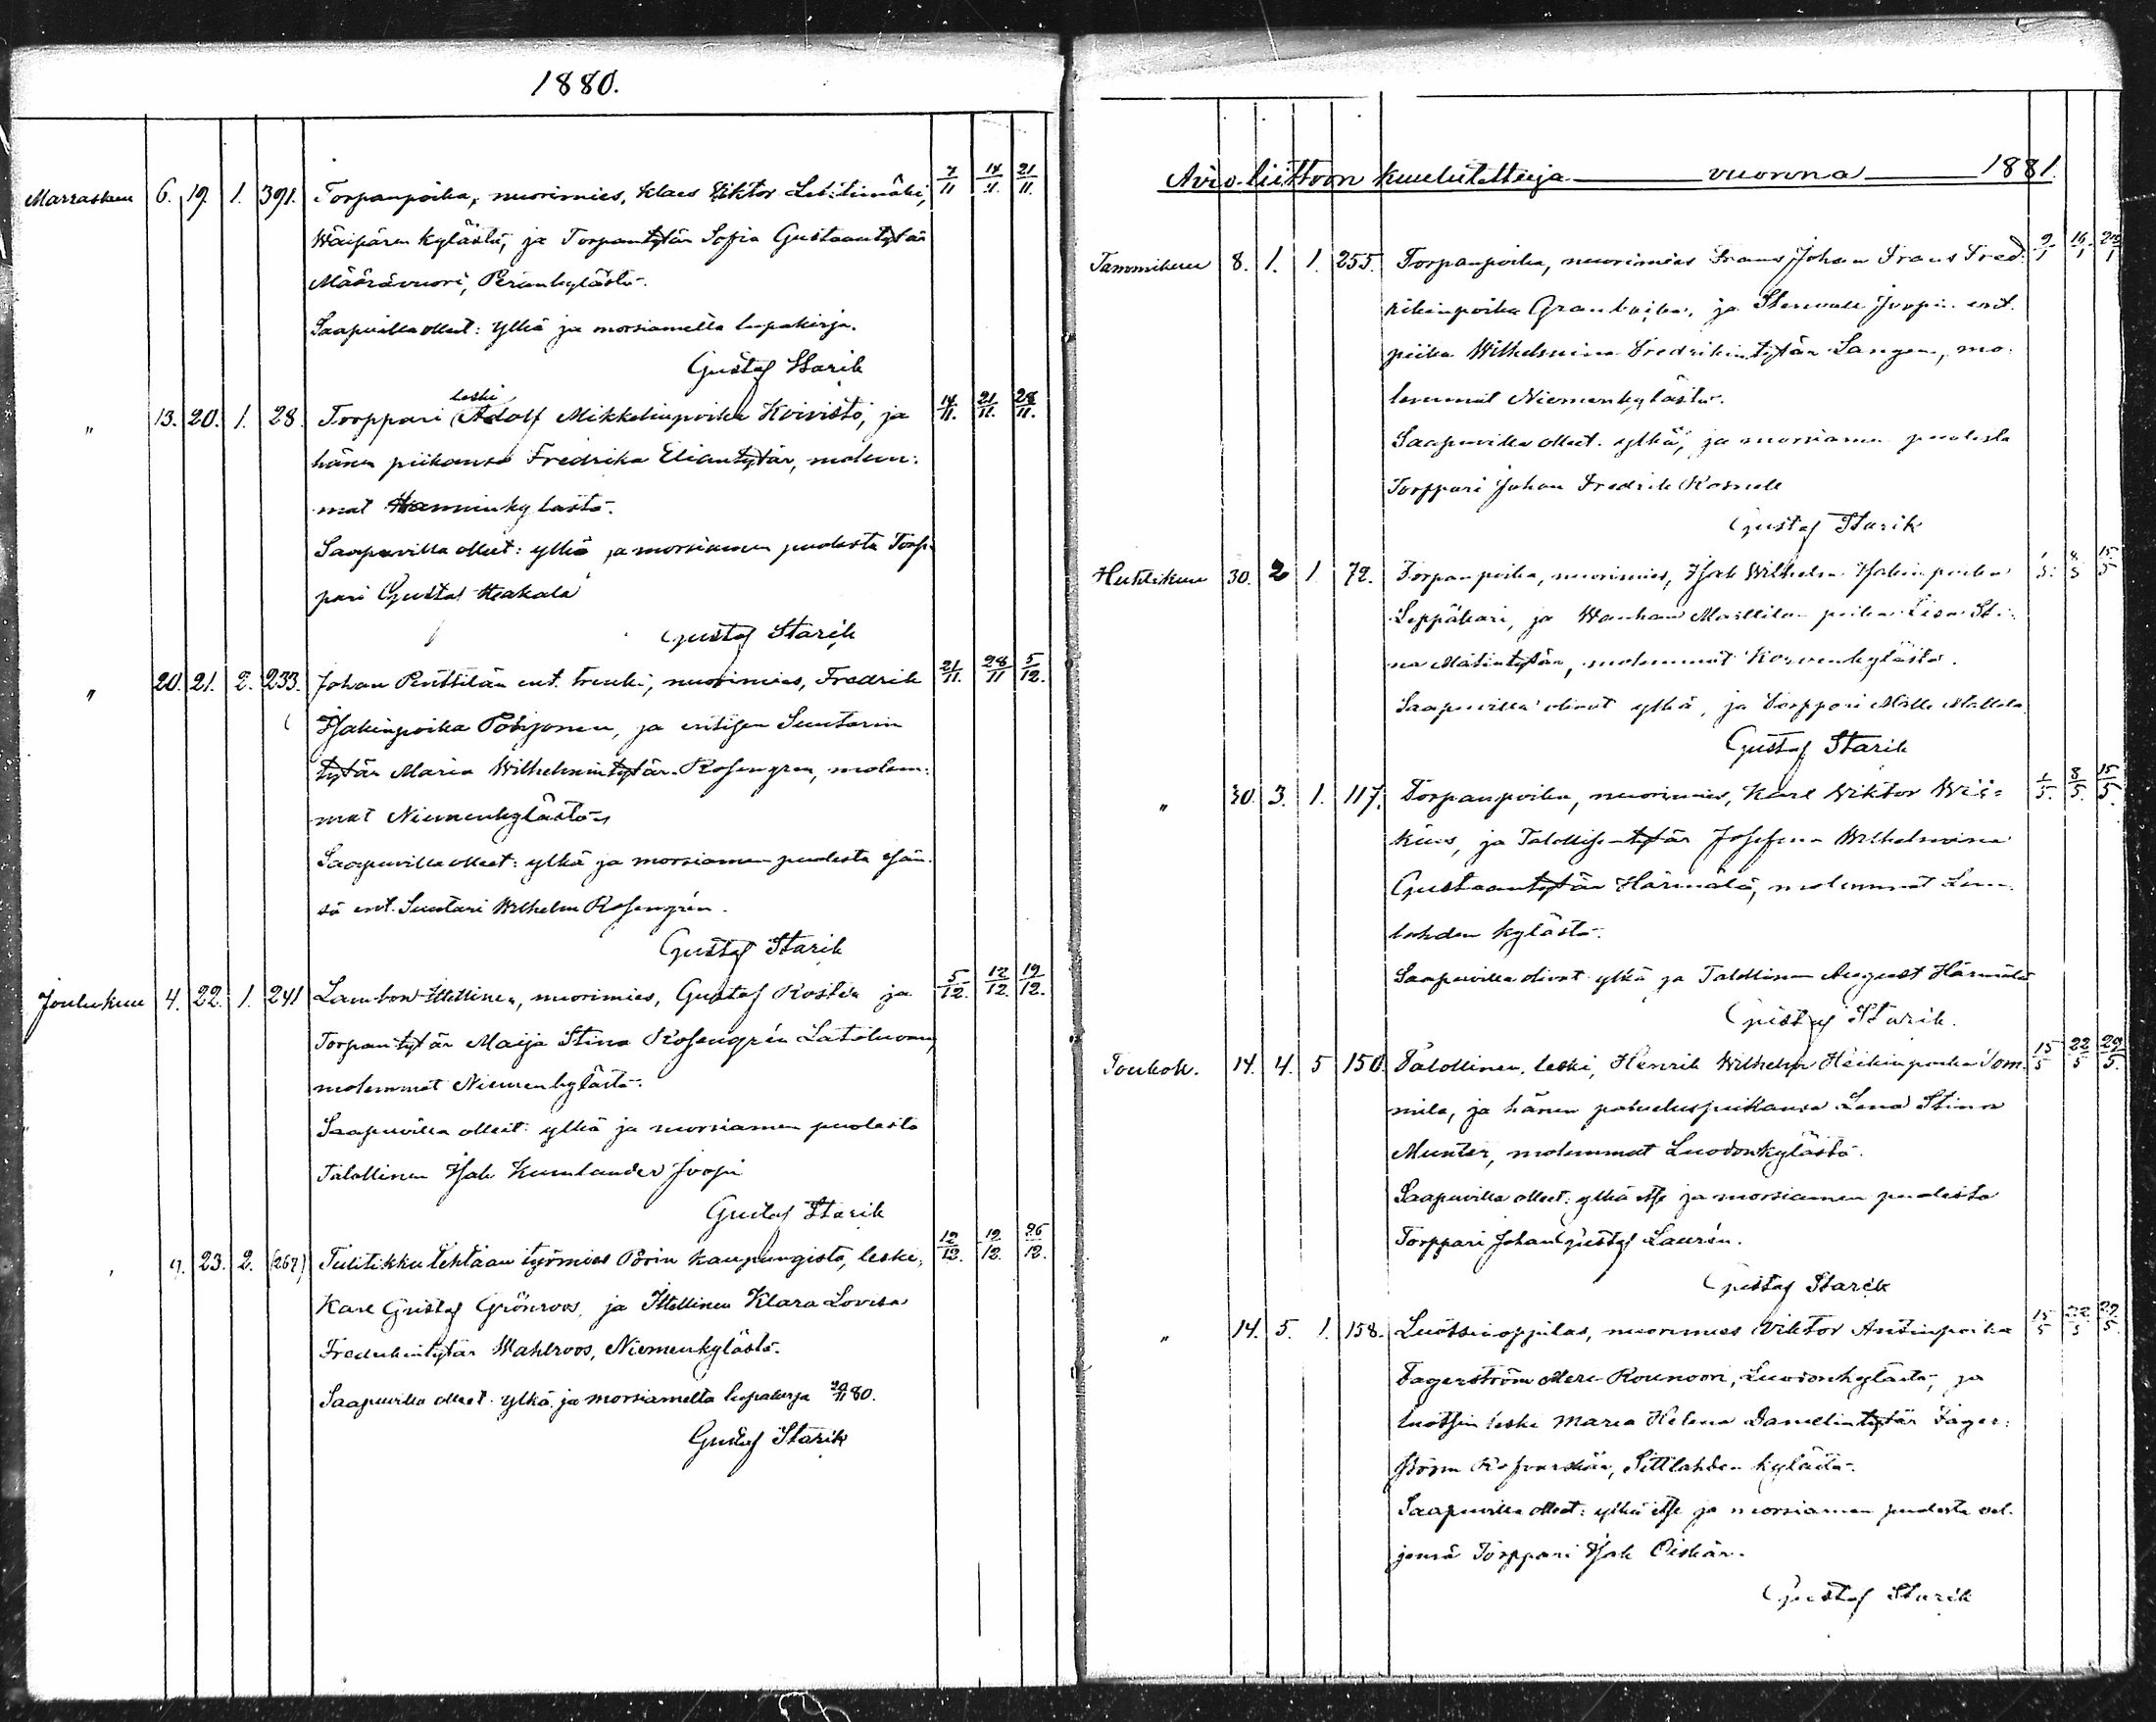 1880.
Marraskuu 6. 19. 1. 391. Torpanpoika, nuorimies, Klaes Wiktor 7/11 14/11. 21/11.
Kylästä, ja Torpantytär Sofia Gustaantytär
Määrävuori, Peränkylästä.
Saapuvilla olleet: ylkä ja morsiamelta lupakirja.
Gustaf Starik
leski
" 13. 20. 1. 28. Torppari Adolf Mikkelinpoika Koivisto, ja 14/11. 21/11. 28/11.
hänen piikansa Fredrika Eliantytär, molem:
mat Hamminkylästä.
Saapuvilla olleet: ylkä ja morsiamen puolesta Torp-
pari Gustaf
Gustaf Starik
" 20. 21. 2. 233. Johan Penttilän ent. trenki, nuorimies, Fredrik 21/11. 28/11 5/12.
Isakinpoika Pohjonen, ja entisen Suutarin
tytär Maria Wilhelmintytär Rosengren, molem:
mat Niemenkylästä
Saapuvilla olleet: ylkä ja morsiamen puolesta isän-
sä ent. Suutari Wilhelm Rosengrén.
Gustaf Starik
Joulukuu 4. 22. 1. 241 Itellinen, nuorimies, Gustaf ja 5/12. 12/12. 19/12.
Torpantytär Maija Stina Rosengrén Latoluoma,
molemmat Niemenkylästä.
Saapuvilla olleet: ylkä ja morsiamen puolesta
Talollinen Isak Kumlander Joopi
Gustaf Starik
23. 2. (267) Tulitikkutehtaan työmies Porin kaupungista, leski, 12/12. 19/12. 26/12.
Karl Gustaf Grönroos, ja Itellinen Klara Lovisa
Fredrikintytär Wahlroos, Niemenkylästä.
Saapuvilla olleet: ylkä ja morsiamelta lupakirja 80.
Gustaf Starik
Avio-liittoon kuulutettuja vuonna 1881.
Tammikuu 8. 1. 1. 255. Torpanpoika, nuorimies Frans Johan Frans Fred- 9/1 16/1
rikinpoika ja Joopin ent.
piika Wilhelmina Fredrikintytär Langen, mo-
lemmat Niemenkylästä.
Saapuvilla olleet: ylkä, ja morsiamen puolesta
Torppari Johan Fredrik
Gustaf Starik
Huhtikuu 30. 2 1. 72. Torpanpoika, nuorimies, Isak Wilhelm Isakinpoika 1/5. 8/5 15/5
Leppäkari, ja Wanhan Marttilan piika Lisa Sti-
na Matintytär, molemmat Korvenkylästä.
Saapuvilla olivat ylkä, ja Torppari
Gustaf Starik
" 30. 3. 1. 117. Torpanpoika, nuorimies, Karl Wiktor 1/5. 8/5. 15/5.
ja Talollisentytär Josefina Wilhelmina
Gustaantytär Härmälä, molemmat
lahden kylästä.
Saapuvilla olivat ylkä ja Talollinen August Härmälä
Gustaf Starik.
Toukok. 14. 4. 5 150. Talollinen, leski, Henrik Wilhelm Heikinpoika Tom- 15/5 22/5 29/5.
mila, ja hänen palveluspiikansa Lena Stina
Munter, molemmat Luodonkylästä.
Saapuvilla olleet: ylkä itse ja morsiamen puolesta
Torppari Johan Gustaf Laurén.
Gustaf Starik
" 14. 5. 1. 158. Luotsioppilas, nuorimies Viktor Antinpoika 15/5 22/5 29/5.
Fagerström Luodonkylästä, ja
luotsin leski Maria Helena Danielintytär Fager:
ström kylästä.
Saapuvilla olleet: ylkä itse ja morsiamen puolesta vel-
jensä Torppari Isak
Gustaf Starik